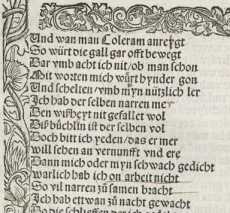 Und wan man Coleram anregt
So würt die gall gar offt bewegt
Dar vmb acht ich nit / ob man schon
Mit worten mich würt hynder gon
Und schelten / vmb myn nützlich ler
Ich hab der selben narren me
Den wißheyt nit gefallet wol
Diß büchlin ist der selben vol
Doch bitt ich yeden / das er mer
will sehen an vernunfft vnd ere
Dann mich oder myn schwach gedicht
warlich hab ich on arbeit nicht
So vil narren zů samen bracht
Ich hab ettwan zů nacht gewacht